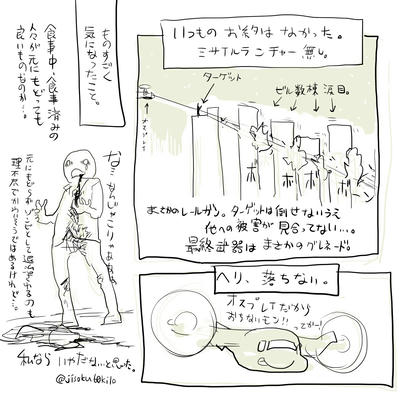 いつもの お約束はなかった。
ミサイルランチャー無し。
ターゲット
ビル数棟 涙目。
ボ
ボ
ボ
ボ
まさかのレールガン。ターゲットは倒せないうえ
他への被害が見合ってない…。
最終武器は まさかのグレネード。
ヘリ、落ちない。
オスプレイだから
おちないモン!!
ってかー!
ものすごく
気になったこと。
食事中、食事済みの
人々が元にもどっても
良いものなのか…。
な
なんじゃこりゃああ
元にもどらな
理不尽でかわいそうではあるけれど…。
私なら いやだな…と思った。
@jiisakutokilo